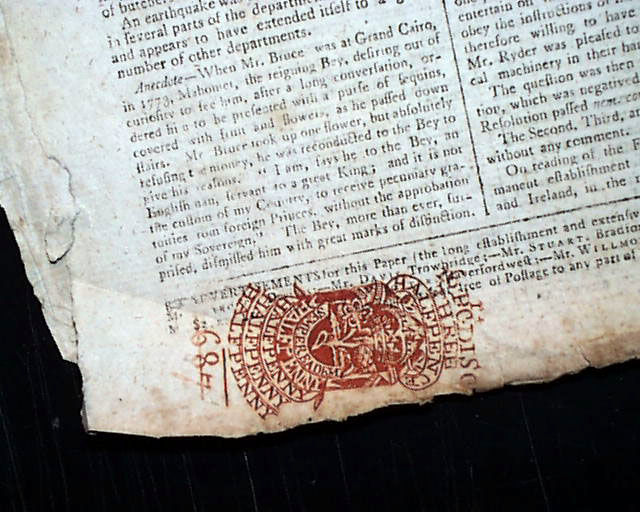 of
An earthquake was
in several parts of the department
and appears to have extended itself to a
number of other departments.
Anecdote—When Mr. Bruce was at Grand Cairo,
in 1773, Mahomet, the reigning Bey, desiring out of
curiosity to see him, after a long conversation, or-
dered him to be presented with a purse of sequins,
covered with fruit and flowers, as he passed down
stairs. Mr. Bruce took up one flower, but absolutely
refusing the money, he was reconducted to the Bey to
give his reasons. “I am, says he to the Bey, an
English man, servant to a great King; and it is not
the custom of my Country, to receive pecuniary gra-
tuities from foreign Princes, without the approbation
of my Sovereign,” The Bey, more than ever, sur-
prised, dismissed him with great marks of distinction.
entertain on
obey the instructions of
therefore willing to have
Mr. Ryder was pleased to
cal machinery in their
The question was then
tion, which was negatived
Resolution passed nem. con.
The Second, Third, a
without any comment.
On reading of the F
manent establishment
and Ireland, in the
ADVERTISEMENTS for this Paper [the long establishment and extensi
Mr. DAVIS, Trowbridge;—Mr. STUART, Bradfo
Haverfordwest;—Mr. WILLMO
of Postage to any part of
684
HALFPENNY
HALFPENNY
HALFPENNY
HALFPENCE
THREE
DISC